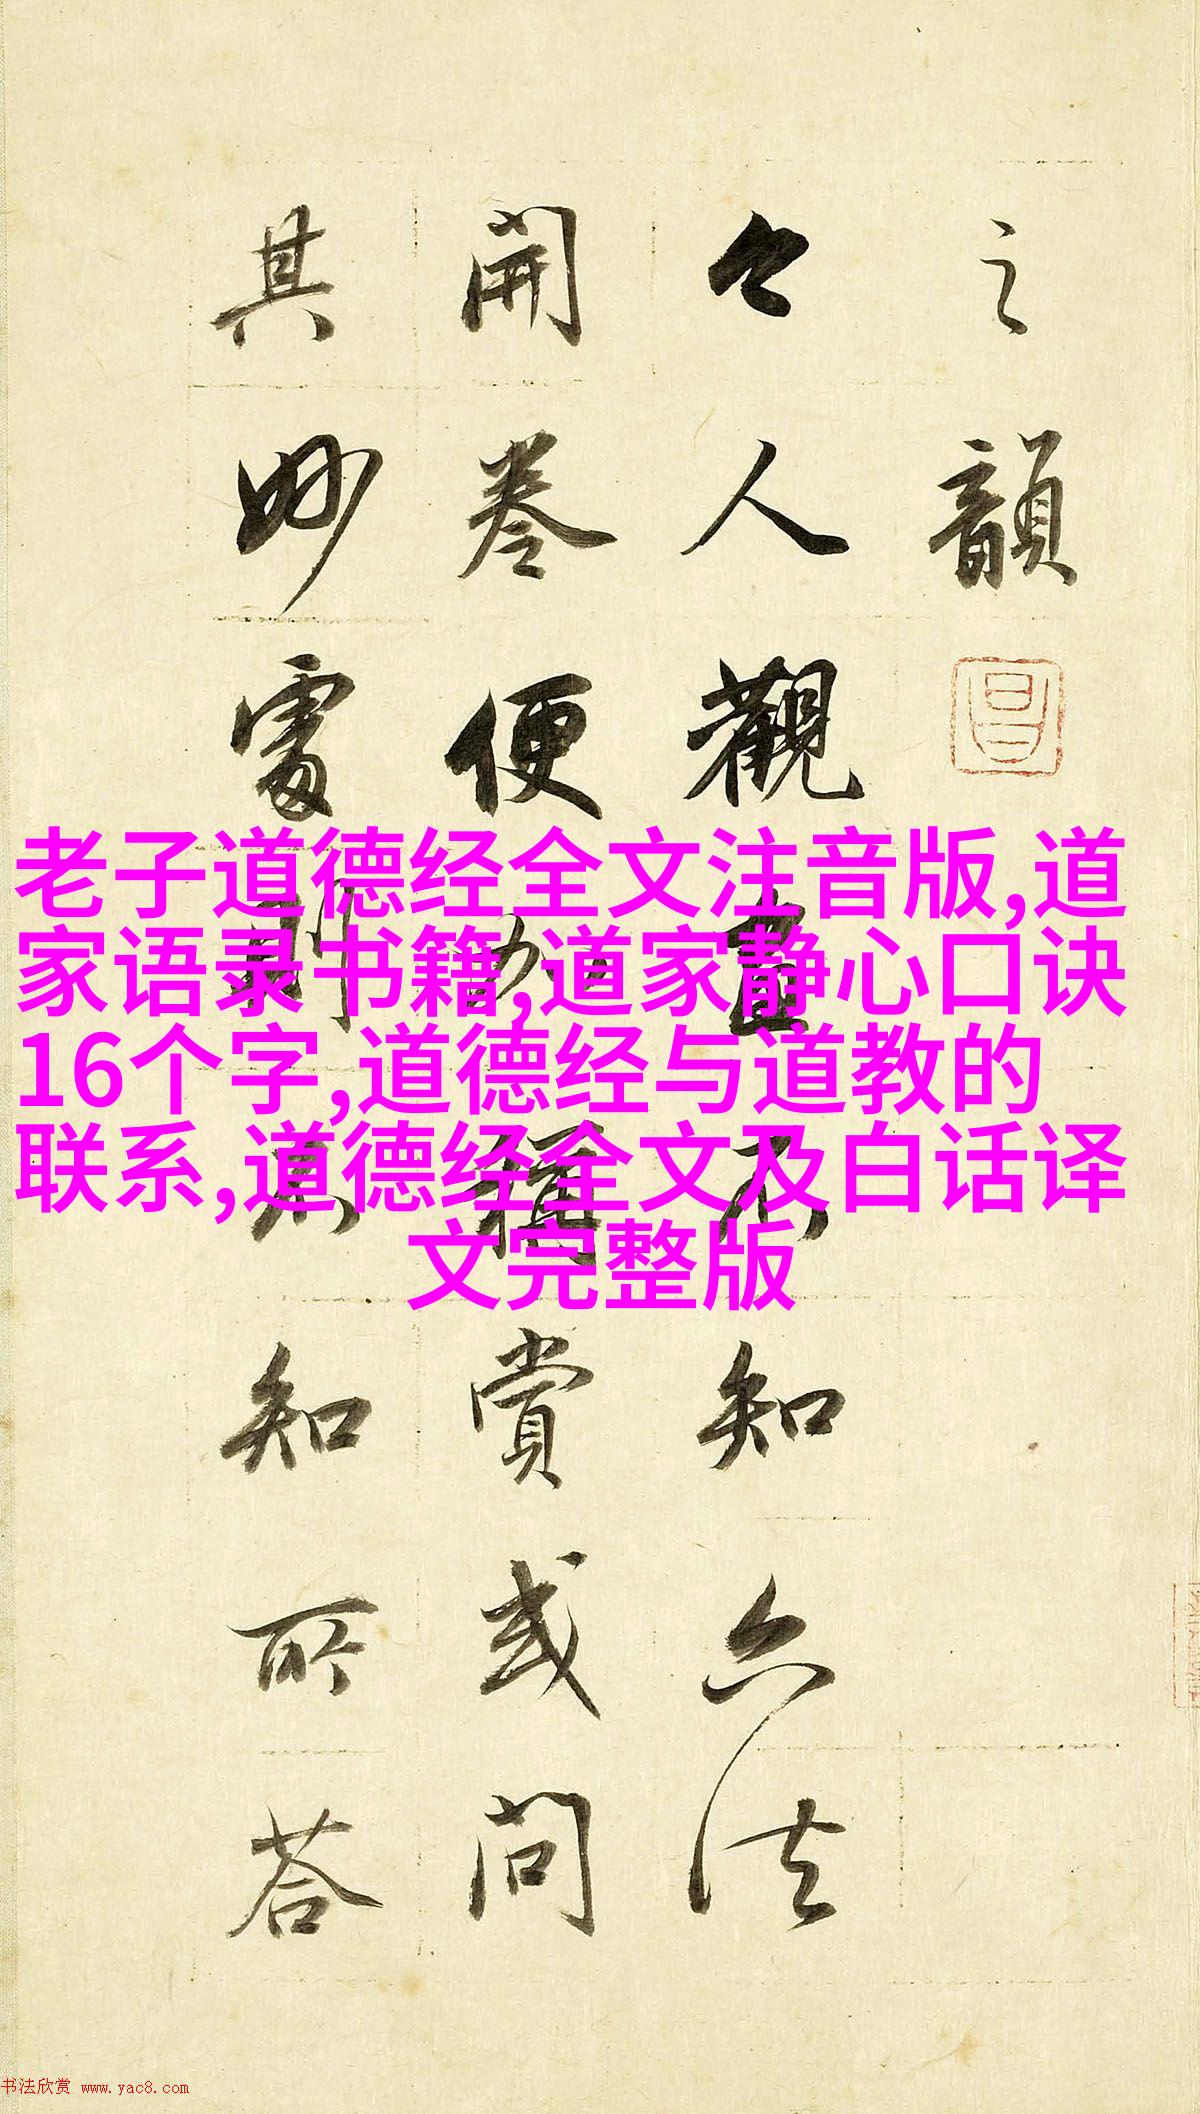 之韻
今人觀畫不知六法
開卷便加稱賞或問
其妙處則不知所答
老子道德经全文注音版,道
家语录书籍,道家静心口诀
16个字,道德经与道教的
联系,道德经全文及白话译
文完整版
书法欣赏 www.yac8.com